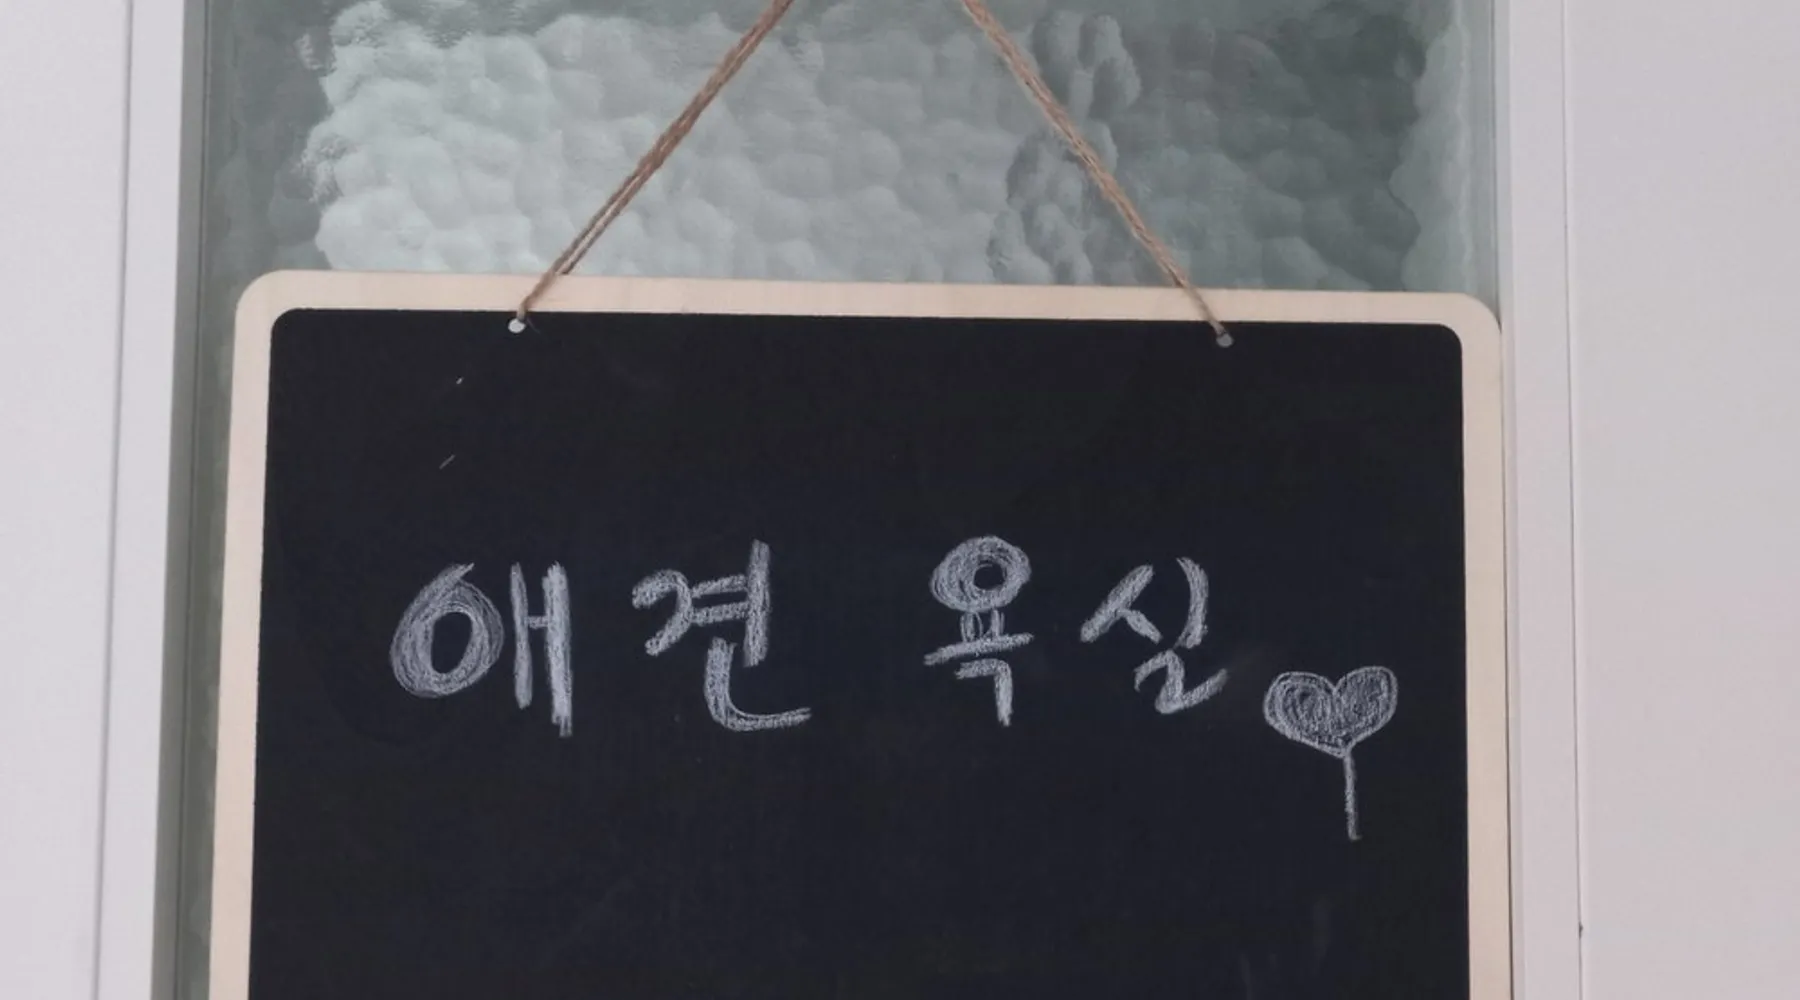 애견 욕실